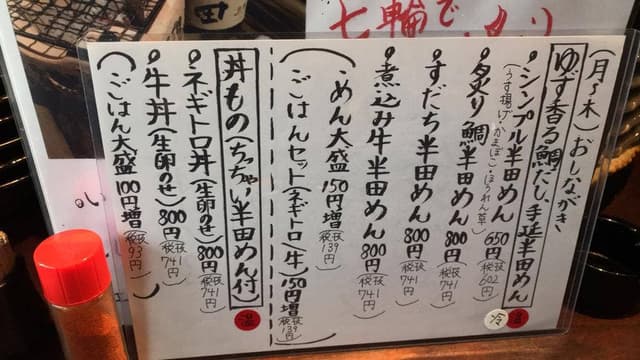 七輪で
田
(月~木)おしながき
ゆず香る鯛だし、手延半田めん
温
冷
シンプル半田めん 650円(税抜602円)
(うす揚げ・かまぼこ・ほうれん草)
炙り鯛半田めん 800円(税抜741円)
すだち半田めん 800円(税抜741円)
煮込み牛半田めん 800円(税抜741円)
(めん大盛 150円増(税抜139円)
ごはんセット(ネギトロ/牛)150円増(税抜139円))
丼もの(ちっちゃい半田めん付)
温
ネギトロ丼(生卵のせ)800円(税抜741円)
牛丼(生卵のせ)800円(税抜741円)
(ごはん大盛 100円増(税抜93円))